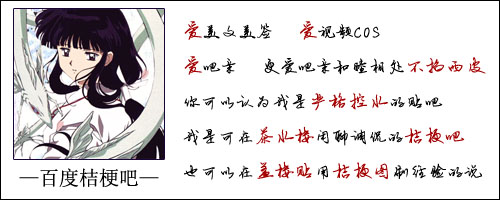 爱美文美签 爱视频COS
爱吧亲 更爱吧亲和睦相处不掐两皮
你可以认为我是严格控水的贴吧
我是可在茶水楼闲聊调侃的桔梗吧
也可以在盖楼贴用桔梗图刷经验的说
—百度桔梗吧—